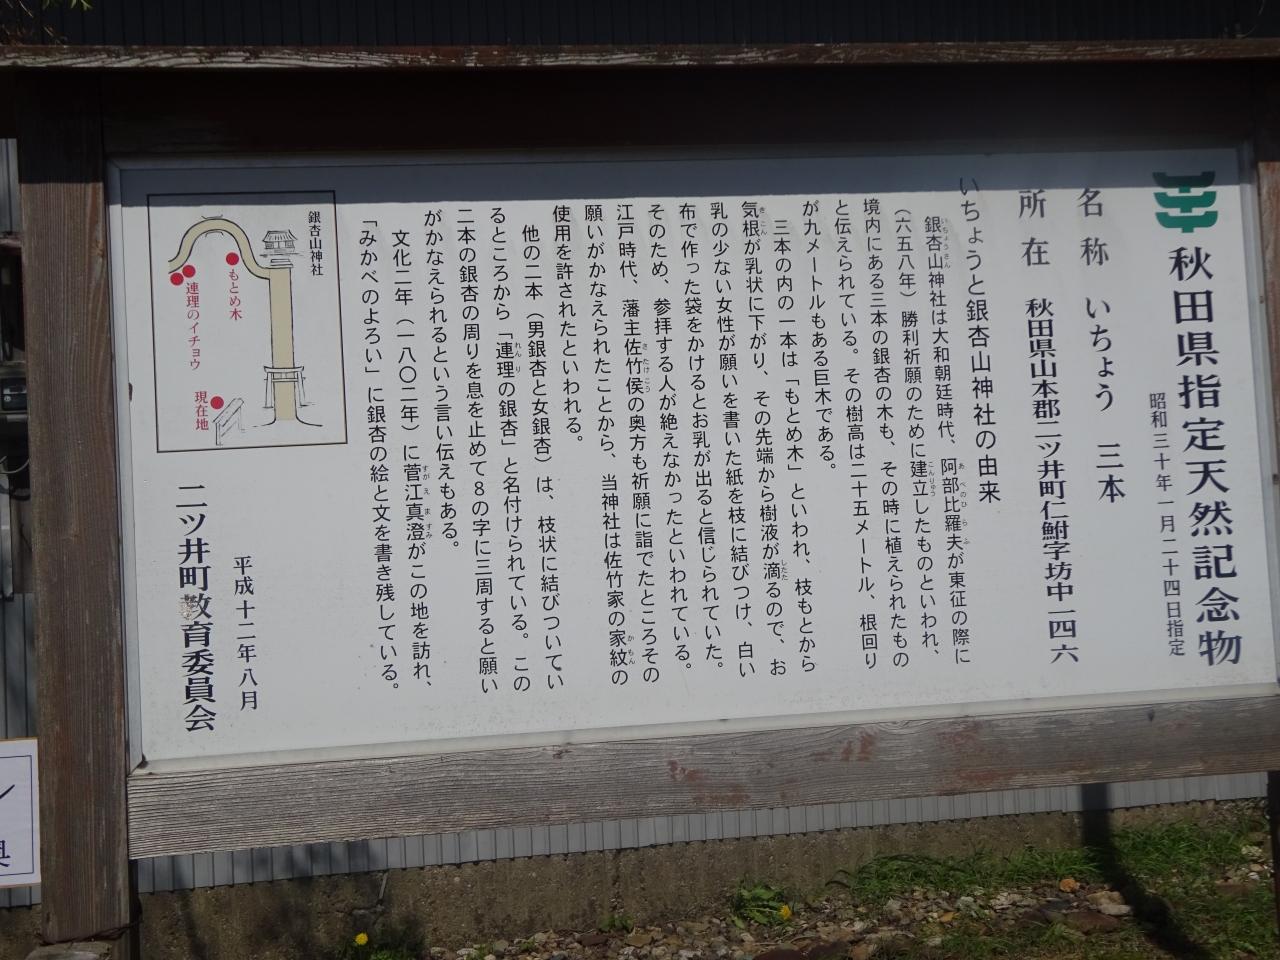 秋田県指定天然記念物
昭和三十年一月二十四日指定
名称 いちょう 三本
所在 秋田県山本郡二ツ井町仁鮒字坊中一四六
いちょうと銀杏山神社の由来
銀杏山神社は大和朝廷時代、阿部比羅夫が東征の際に
(六五八年)勝利祈願のために建立したものといわれ、
境内にある三本の銀杏の木も、その時に植えられたもの
と伝えられている。その樹高は二十五メートル、根回り
が九メートルもある巨木である。
三本の内の一本は「もとめ木」といわれ、枝もとから
気根が乳状に下がり、その先端から樹液が滴るので、お
乳の少ない女性が願いを書いた紙を枝に結びつけ、白い
布で作った袋をかけるとお乳が出ると信じられていた。
そのため、参拝する人が絶えなかったといわれている。
江戸時代、藩主佐竹侯の奥方も祈願に詣でたところその
願いがかなえられたことから、当神社は佐竹家の家紋の
使用を許されたといわれる。
他の二本(男銀杏と女銀杏)は、枝状に結びついてい
るところから「連理の銀杏」と名付けられている。この
二本の銀杏の周りを息を止めて8の字に三周すると願い
がかなえられるという言い伝えもある。
文化二年(一八〇二年)に菅江真澄がこの地を訪れ、
「みかべのよろい」に銀杏の絵と文を書き残している。
平成十二年八月
二ツ井町教育委員会
銀杏山神社
もとめ木
連理のイチョウ
現在地